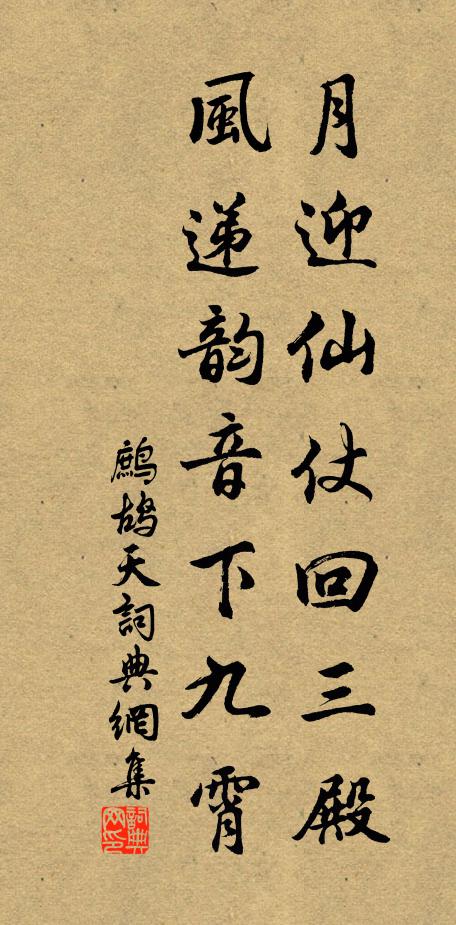 月迎仙仗回三殿
風递韵音下九霄
鷓鴣天詞典網集
詞典网印